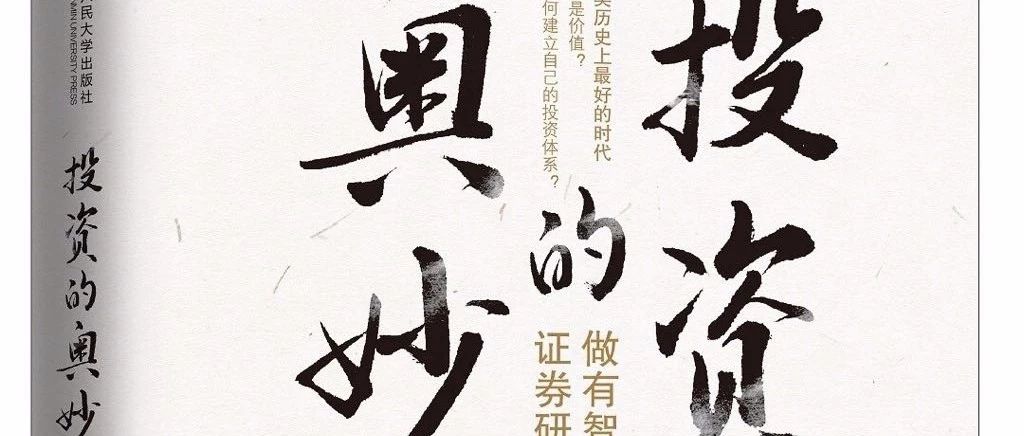 投资
的
奥妙
历史上最好的时代
是价值？
何建立自己的投资体系？
做有智
证券研
民大学出版社
UNIVERSITY PRESS
投资的奥妙